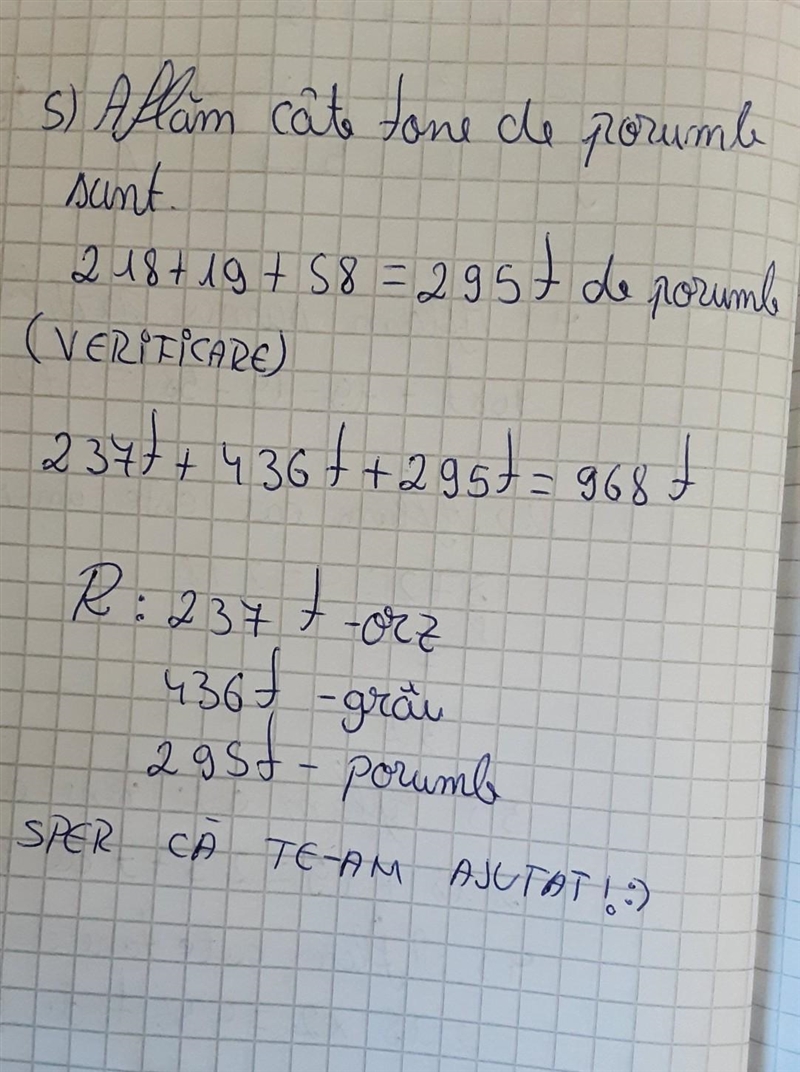 5) Aflăm câte tone de porumb
sunt.
218+19+58=295t de porumb
(VERIFICARE)
237t+436t+295t=968t
R: 237 t -orz
436t -grâu
295t- porumb
SPER CĂ TE-AM AJUTAT!:)